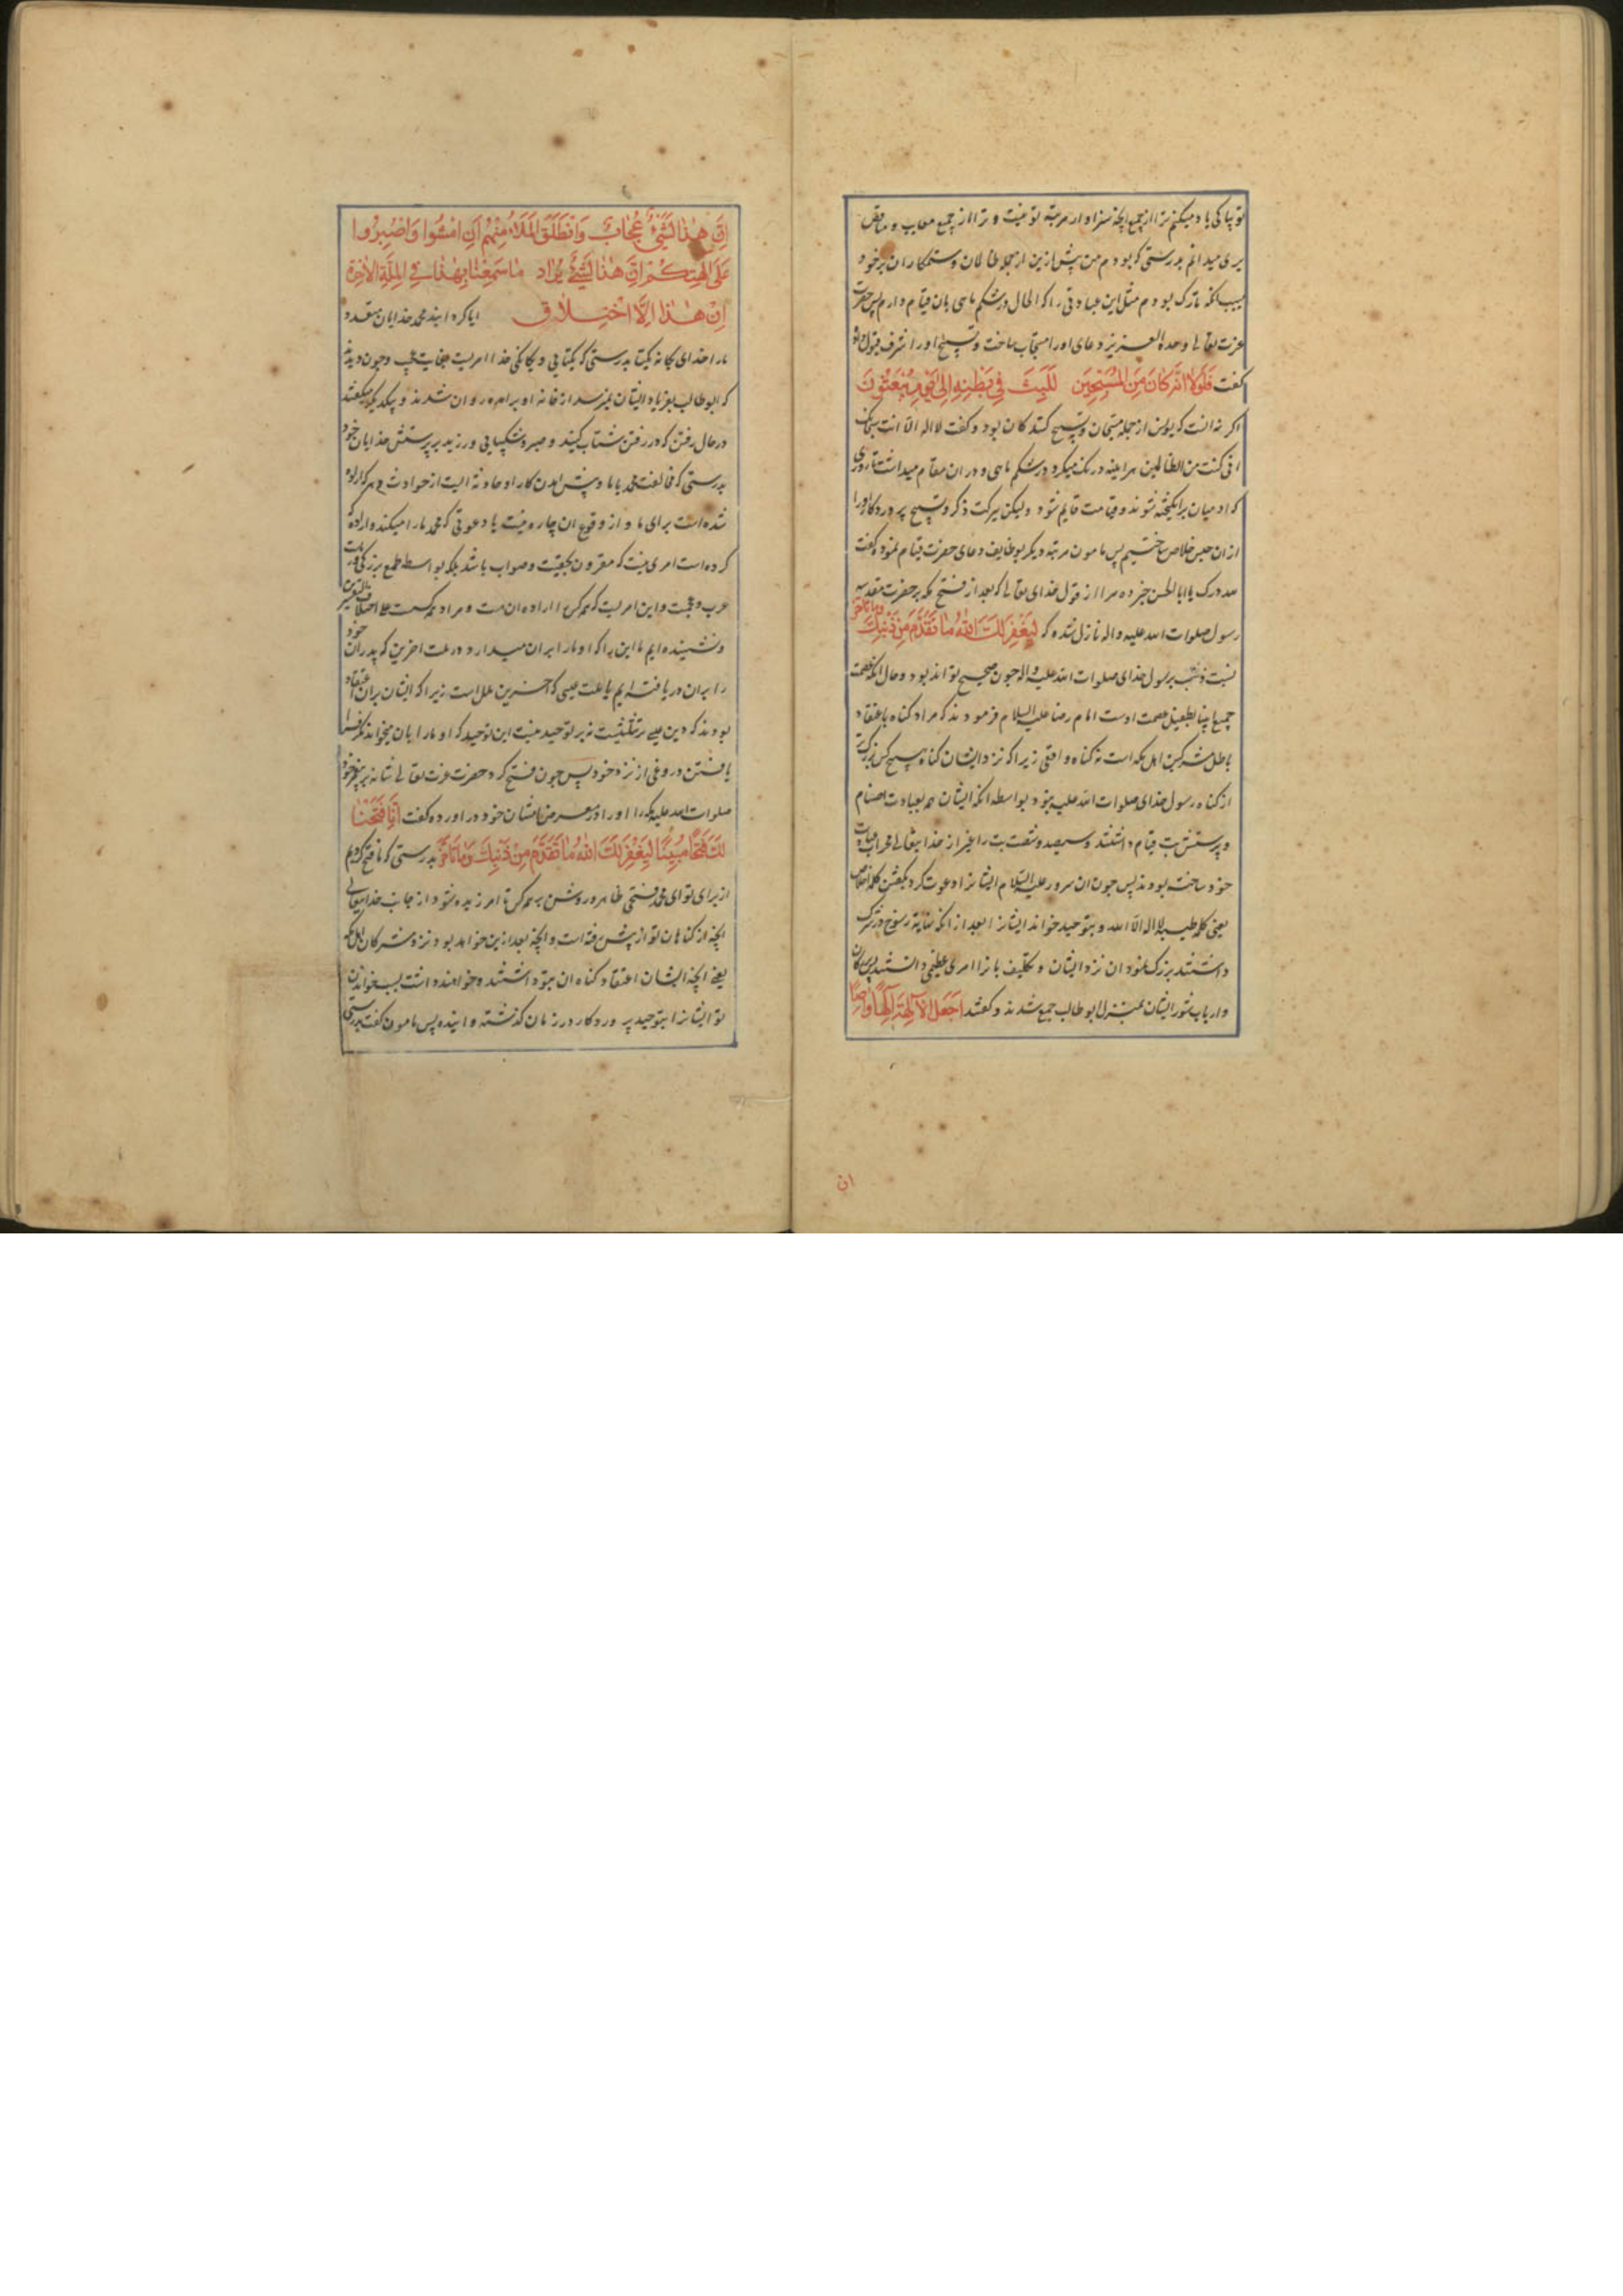 تو بپاکی یاد میکنم ترا از جمیع آنچه سزاوار مرتبه تو نیست و ترا از جمیع معایب و مناقص
بری میدانم بدرستی که بودم من پیش ازین از جمله ظالمان و ستمکاران بر خود
بسبب انکه تارک بودم مثل این عبادتی را که الحال در شکم ماهی بان قیام دارم پس حضرت
عزت تعالی وحده العزیز دعای او را مستجاب ساخت و تسبیح او را شرف قبول
گفت فَلَوْلا اَنَّهُ كانَ مِنَ المُسَبِّحينَ لَلَبِثَ فِي بَطْنِهِ اِلى يَوْمِ يُبْعَثُونَ
اکر نه انست که یونس از جمله مسبحان و تسبیح کنندکان بود و کفت لا اله الا انت سبحانک
انی کنت من الظالمین هر اینه درنک میکرد در شکم ماهی و در ان مقام میداشت تا روزی
که ادمیان برانکیخته شوند و قیامت قایم شود و لیکن ببرکت ذکر و تسبیح پروردکار او را
ازان حبس خلاص ساختیم پس مامون مرتبه دیکر بوظایف دعای حضرت قیام نموده کفت
لله درک یا ابا الحسن خبر ده مرا از قول خدای تعالی که بعد از فتح مکه بر حضرت مقدسه
رسول صلوات الله علیه و اله نازل شده که لِيَغْفِرَ لَكَ اللهُ ما تَقَدَّمَ مِنْ ذَنْبِكَ وما تاخر
نسبت ذنب برسول خدای صلوات الله علیه و اله چون صحیح تواند بود و حال انکه عصمت
جمیع انبیا بطفیل عصمت اوست امام رضا علیه السلام فرمودند که مراد کناه باعتقاد
باطل مشرکین اهل مکه است نه کناه واقعی زیرا که نزد ایشان کناه هیچ کس بزرکتر
از کناه رسول خدای صلوات الله علیه نبود بواسطه انکه ایشان همه بعبادت اصنام
و پرستش بت قیام داشتند و سیصد و شصت بت را بغیر از خدا یتعالی
خود ساخته بودند پس چون ان سرور علیه السلام ایشانرا دعوت کرد بکفتن کلمه اخلاص
یعنی کلمه طیبه لا اله الا الله و بتوحید خواند ایشانرا بعد از انکه نهایت رسوخ در شرک
داشتند بزرک نمود ان نزد ایشان و تکلیف بانرا امری عظیم دانستند پس
و ارباب شور ایشان بمنزل ابو طالب جمع شدند و کفتند اَجَعَلَ الآلِهَةَ اِلهًا واحِدًا
ان
اِنَّ هذا لَشَيْءٌ عُجابٌ وَانْطَلَقَ المَلَأُ مِنْهُمْ اَنِ امْشُوا وَاصْبِرُوا
عَلى آلِهَتِكُمْ اِنَّ هذا لَشَيْءٌ يُرادُ ما سَمِعْنا بِهذا فِي المِلَّةِ الآخِرَةِ
اِنْ هذا اِلَّا اخْتِلاقٌ ایا کردانید محمد خدایان متعدد
مارا خدای یکانه یکتا بدرستی که یکتایی و یکانکی خدا امریست بغایت عجب و چون دیدند
که ابو طالب بفریاد ایشان نمیرسد از خانه او براه روان شدند و بیکدیکر میکفتند
در حال رفتن که در رفتن شتاب کنید و صبر و شکیبایی ورزید بر پرستش خدایان خود
بدرستی که مخالفت محمد با ما و پیش امدن کار او حادثه ایست از حوادث که اراده
شده است برای ما و از وقوع ان چاره نیست یا دعوتی که محمد ما را میکند و اراده
کرده است امری نیست که مقرون بحقیت و صواب باشد بلکه بواسطه طمع بزرکی
عرب و عجمست و این امریست که همه کس را اراده ان هست و مراد همه کس است
و نشنیده ایم ما این را که او ما را بران میدارد در ملت اخرین که پدران خود
را بران دریافته ایم یا ملت عیسی که اخرین ملل است زیرا که ایشان بران اعتقاد
بودند که دین عیسی بر تثلیثست نه بر توحید نیست این توحید که او ما را بان میخواند مکر افترا
یافتن دروغی از نزد خود پس چون فتح کرد حضرت عزت تعالی شانه بر پیغمبر خود
صلوات الله علیه مکه را او را در معرض امتنان خود در اورده کفت اِنّا فَتَحْنا
لَكَ فَتْحًا مُبِينًا لِيَغْفِرَ لَكَ اللهُ ما تَقَدَّمَ مِنْ ذَنْبِكَ وَما تَأَخَّرَ بدرستی که ما فتح کردیم
از برای تو ای محمد فتحی ظاهر و روشن بر همه کس تا امرزیده شود از جانب خدا یتعالی
انچه از کناهان تو از پیش رفته است و انچه بعد ازین خواهد بود نزد مشرکان اهل مکه
یعنی انچه ایشان اعتقاد کناه ان بتو داشتند و خواهند داشت بسبب خواندن
تو ایشانرا بتوحید پروردکار در زمان کذشته و اینده پس مامون کفت بدرستی